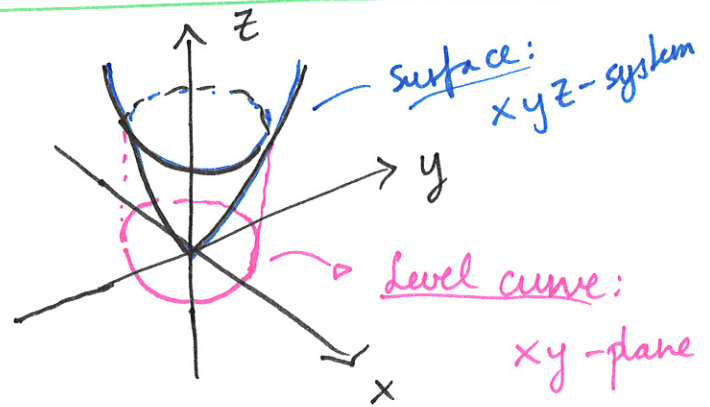 z
Surface:
xyz-system
y
Level curve:
xy-plane
x